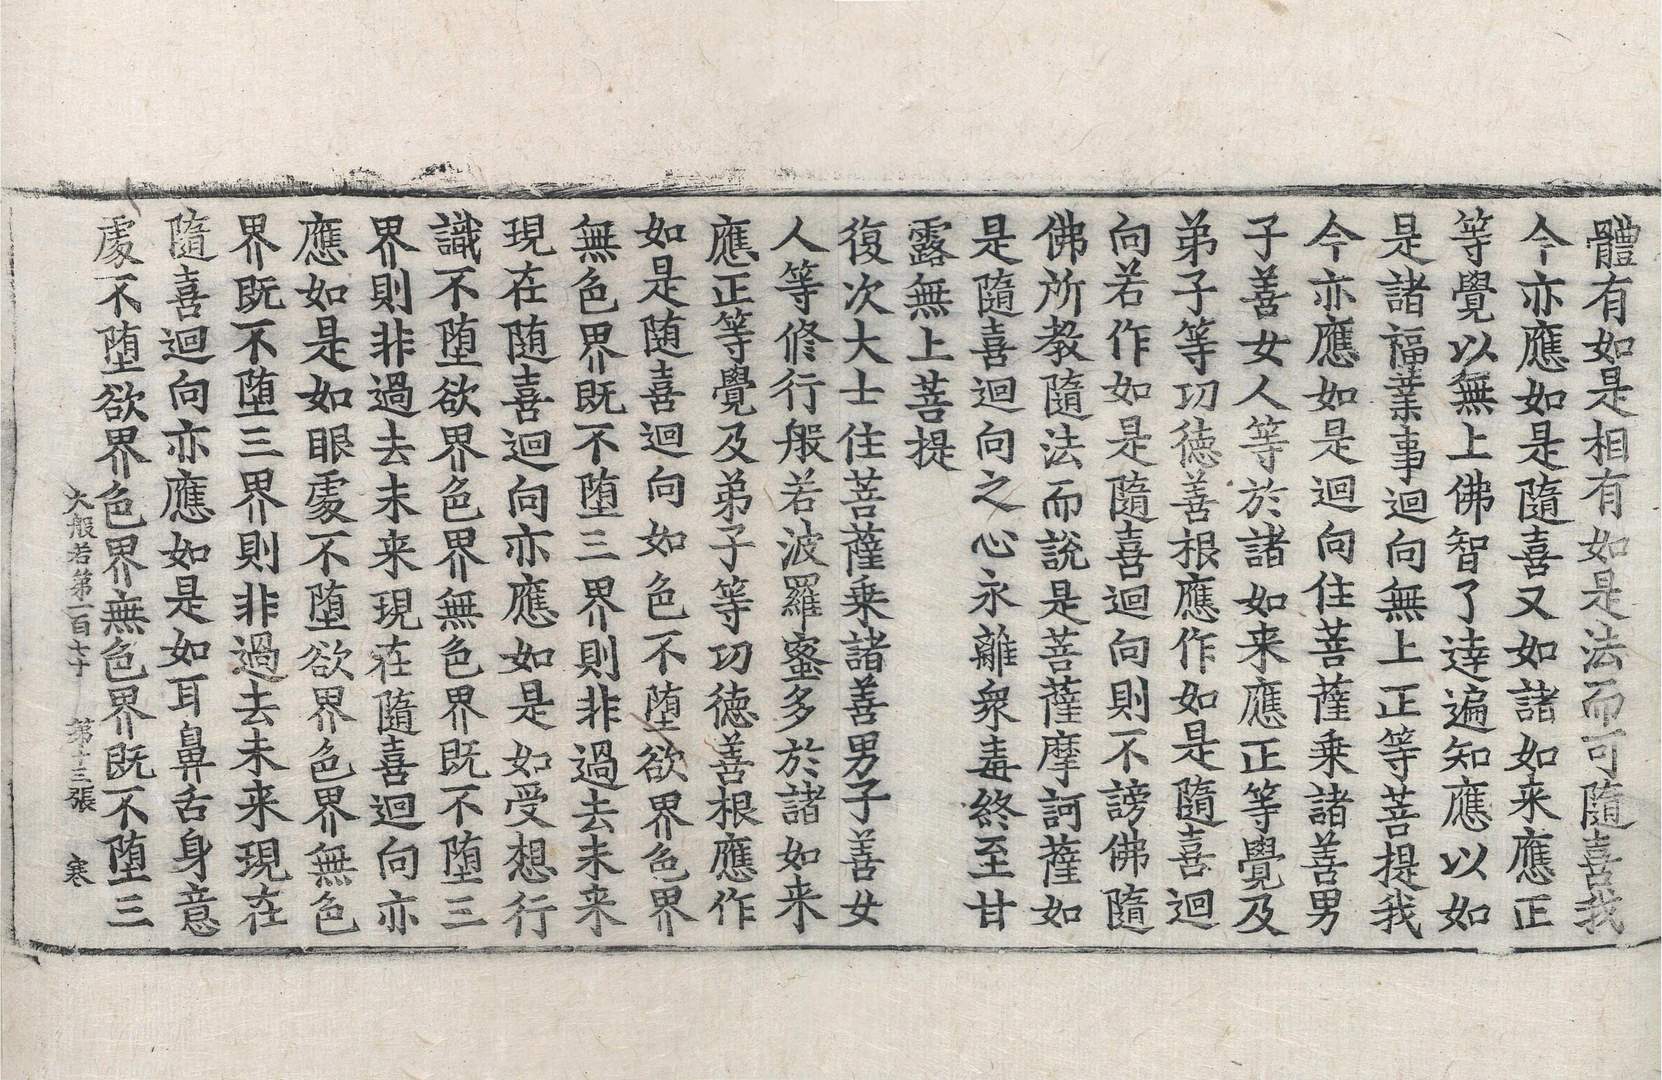 體有如是相有如是法而可隨喜我
今亦應如是隨喜又如諸如来應正
等覺以無上佛智了達遍知應以如
是諸福業事迴向無上正等菩提我
今亦應如是迴向住菩薩乗諸善男
子善女人等於諸如来應正等覺及
弟子等功徳善根應作如是隨喜迴
向若作如是隨喜迴向則不謗佛隨
佛所教隨法而說是菩薩摩訶薩如
是隨喜迴向之心永離衆毒終至甘
露無上菩提
復次大士住菩薩乗諸善男子善女
人等修行般若波羅蜜多於諸如来
應正等覺及弟子等功徳善根應作
如是随喜迴向如色不堕欲界色界
無色界既不堕三界則非過去未来
現在随喜迴向亦應如是如受想行
識不堕欲界色界無色界既不堕三
界則非過去未来現在隨喜迴向亦
應如是如眼處不堕欲界色界無色
界既不堕三界則非過去未来現在
隨喜迴向亦應如是如耳鼻舌身意
處不堕欲界色界無色界既不堕三
大般若第一百七十 第十三張 寒